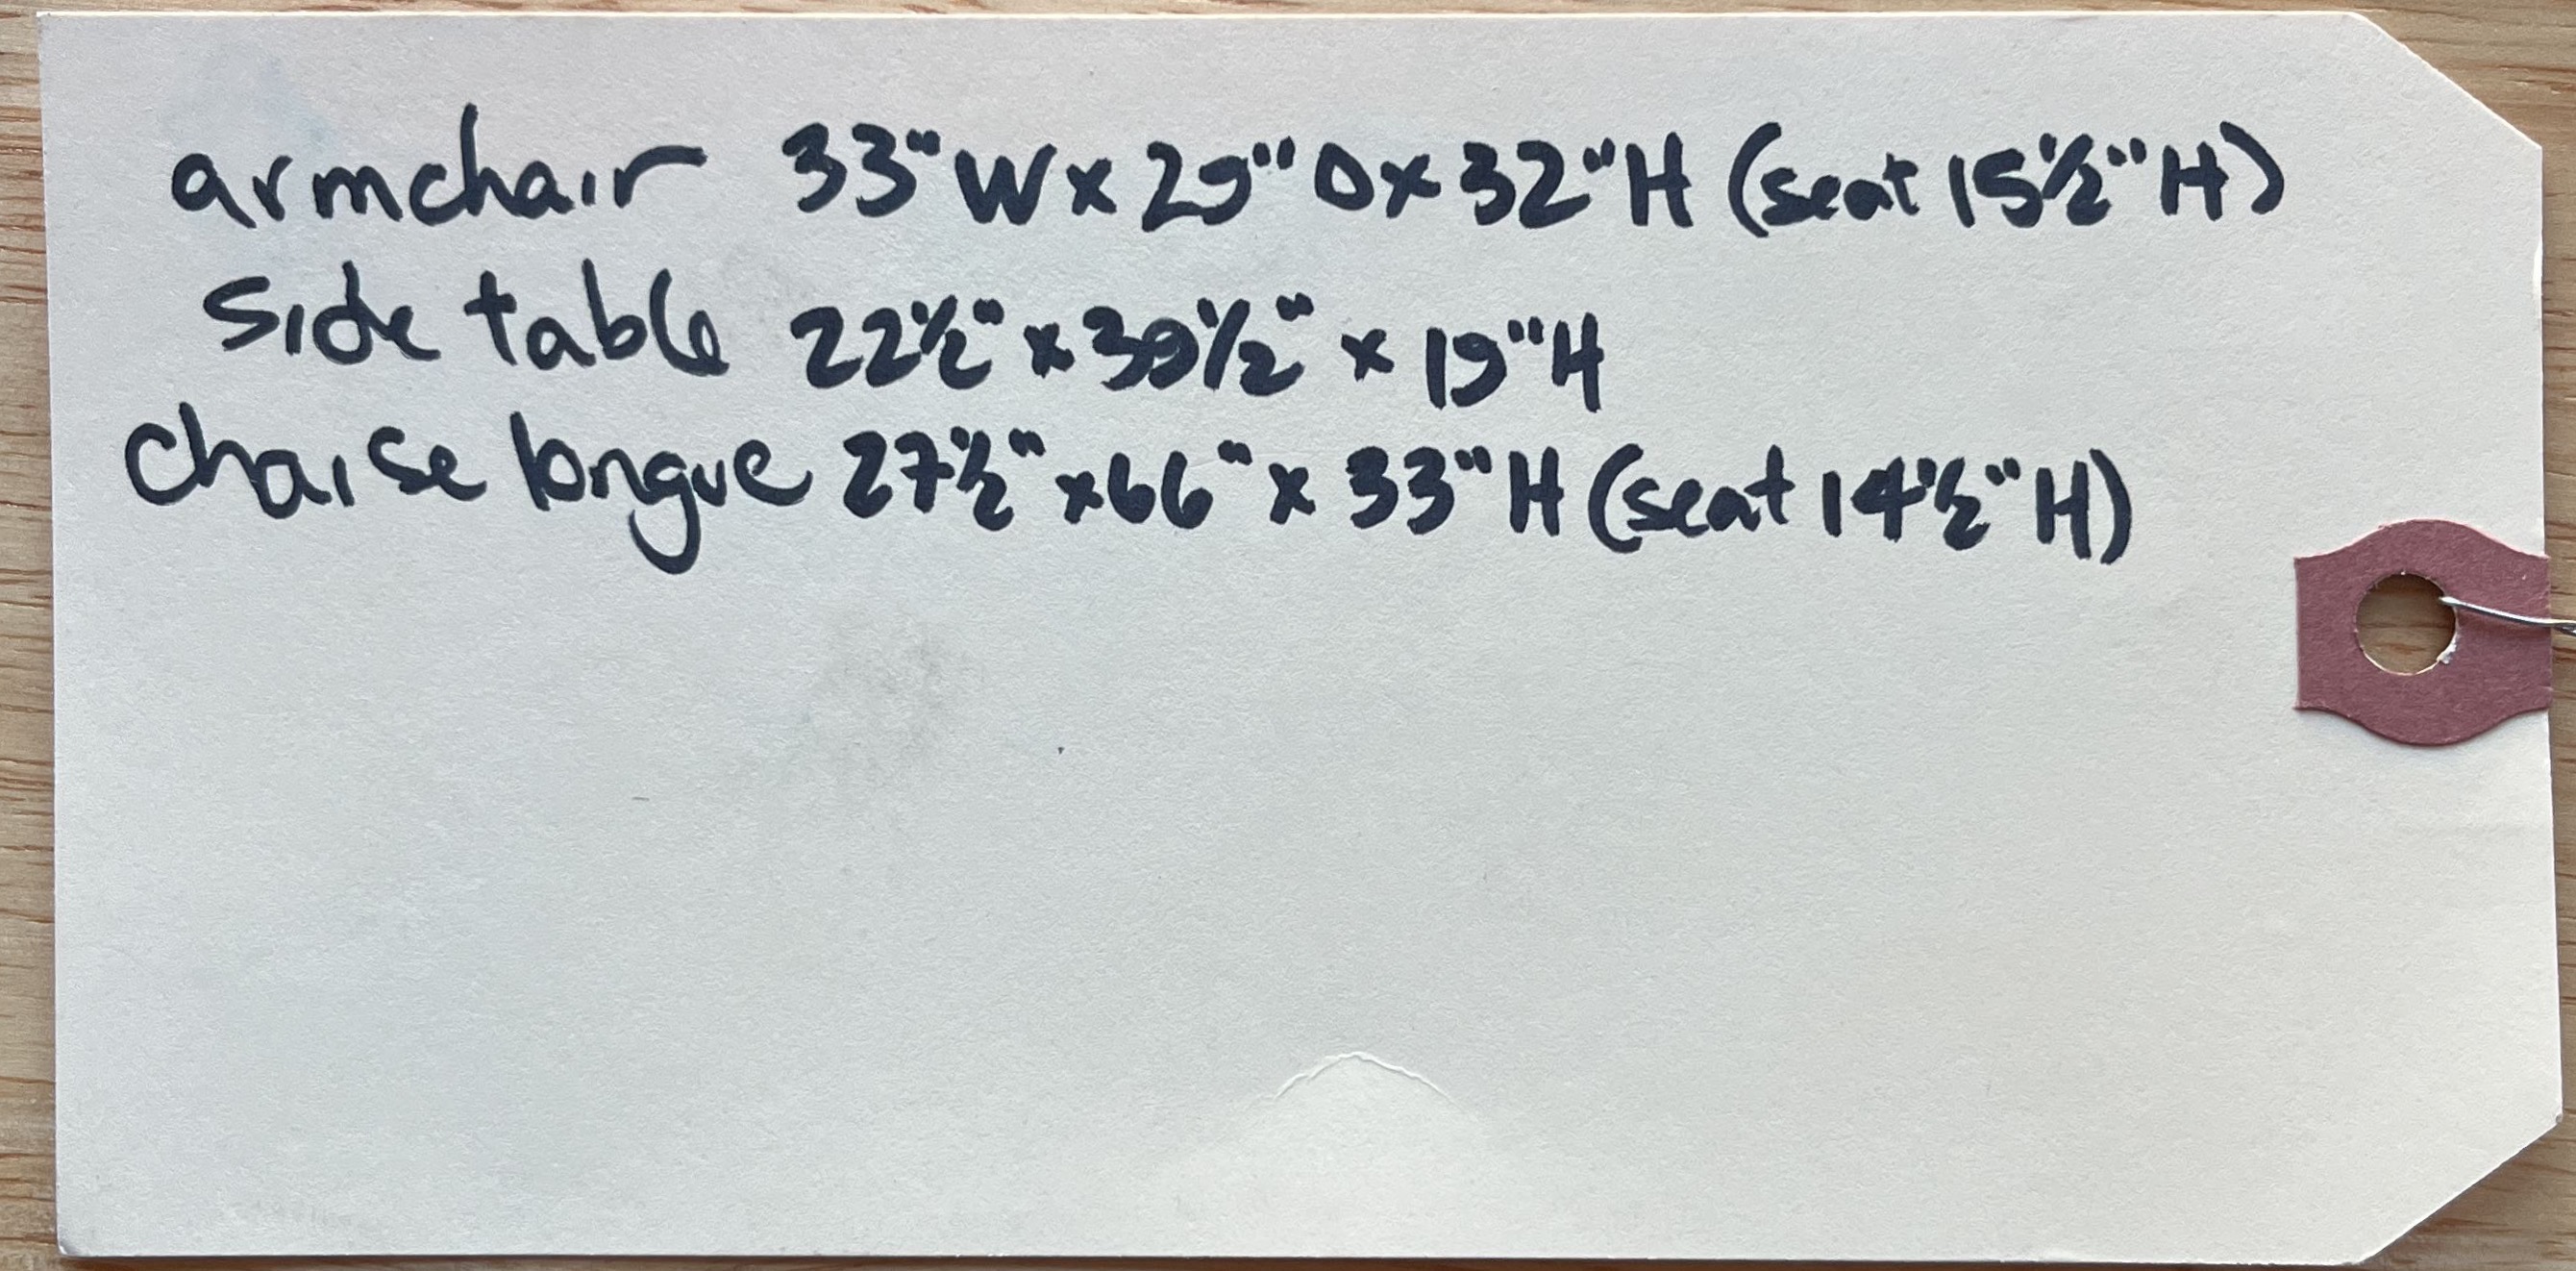 armchair 33"W x 29" D x 32"H (seat 15½"H)
side table 22½" x 39½" x 19"H
chaise longue 27½" x 66" x 33"H (seat 14½"H)